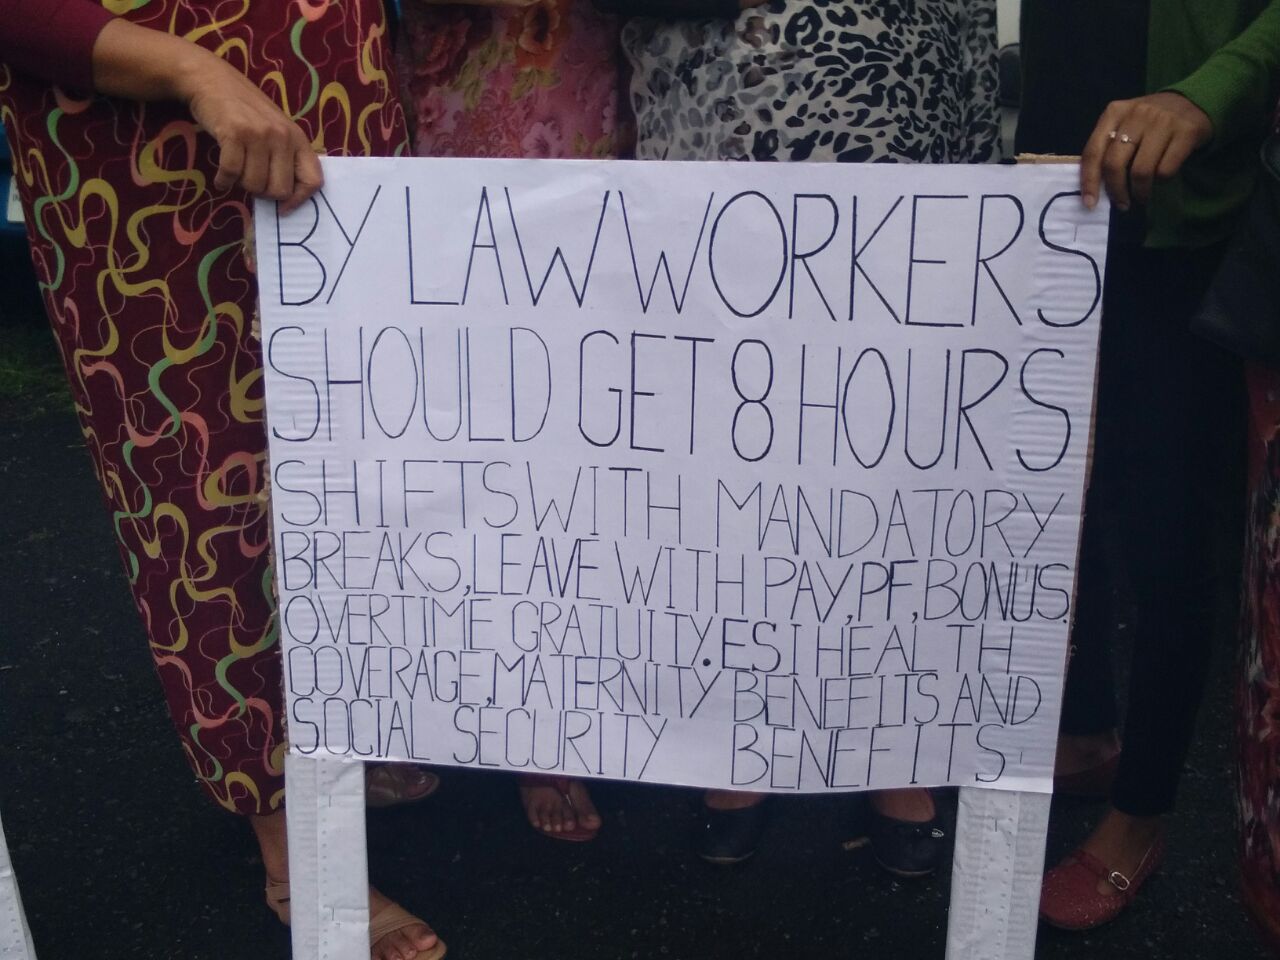 BY LAW WORKERS
SHOULD GET 8 HOURS
SHIFTS WITH MANDATORY
BREAKS, LEAVE WITH PAY, PF, BONUS.
OVERTIME GRATUITY. ESI HEALTH
COVERAGE, MATERNITY BENEFITS AND
SOCIAL SECURITY BENEFITS